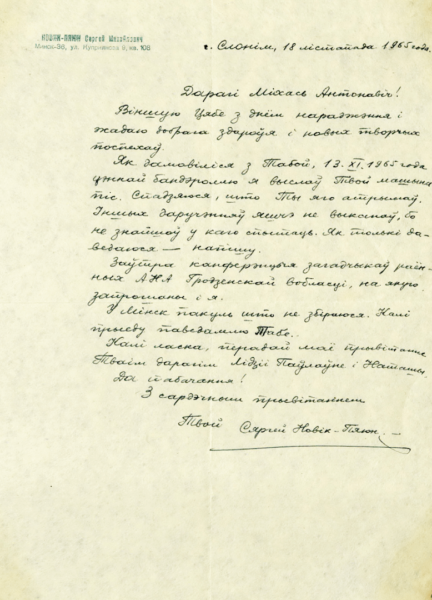 НОВІК-ПЯЮН Сергей Михайлович
Минск-36, ул. 8, кв. 108
г. Слонім, 18 лістапада 1965 года.
Дарагі Міхась Антонавіч!
Віншую Цябе з днём нараджэння і
жадаю добрага здароўя і новых творчых
поспехаў.
Як дамовіліся з Табой, 13.XI.1965 года
цэннай бандэроллю я выслаў Твой машына
піс. Спадзяюся, што Ты яго атрымаў.
Іншых даручэнняў яшчэ не выканаў, бо
не знайшоў у каго спытаць. Як толькі да-
ведаюся — напішу.
Заўтра канферэнцыя загадчыкаў раён-
ных АНА Гродзенскай вобласці, на якую
запрошаны і я.
У Мінск пакуль што не збіраюся. Калі
прыеду паведамлю Табе.
Калі ласка, перадай маё прывітанне
Тваім дарагім Лідзіі Паўлаўне і Наташы.
Да пабачэння!
З сардэчным прывітаннем
Твой Сяргей Новік-Пяюн.